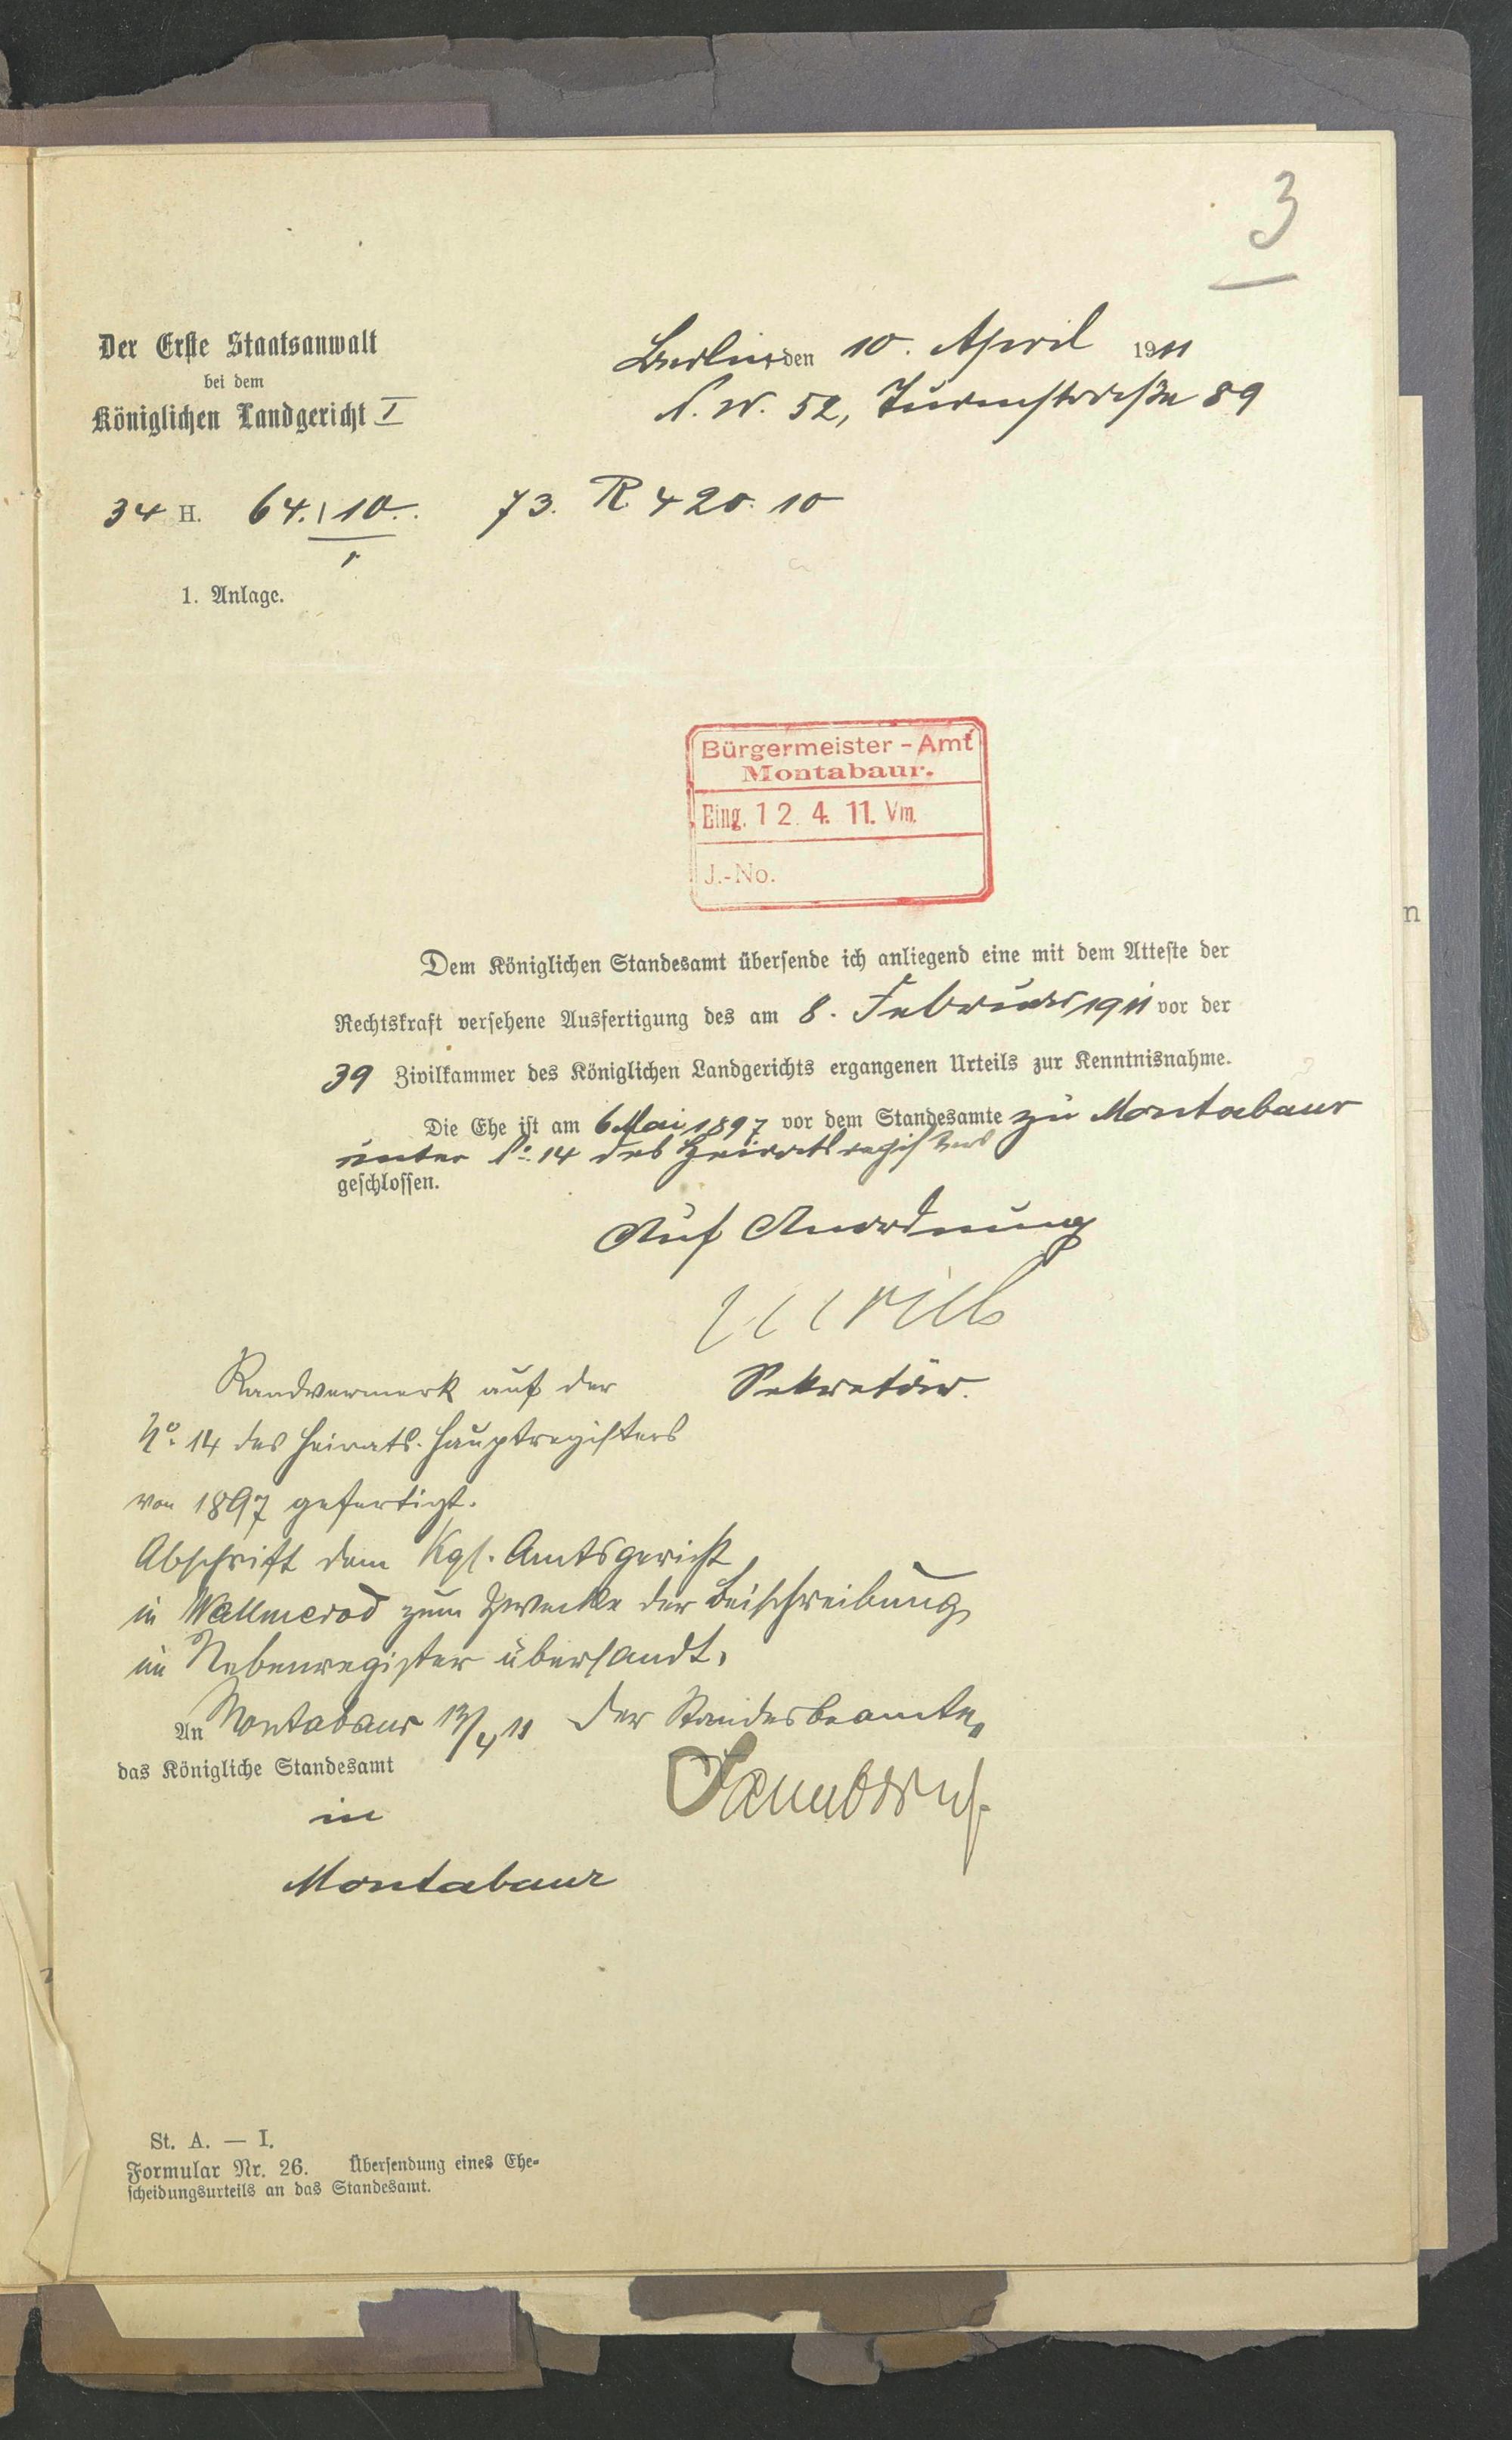 3
Der Erste Staatsanwalt
bei dem
Königlichen Landgericht I
Berlin, den 10. April 1911
N. W. 52, Turmstraße 89
34 H. 64. 10. 73. R. 420. 10
1
1. Anlage.
Bürgermeister-Amt
Montabaur.
Eing. 12. 4. 11. Vm.
J.-No.
Dem Königlichen Standesamt übersende ich anliegend eine mit dem Atteste der
Rechtskraft versehene Ausfertigung des am 8. Februar 1911 vor der
39 Zivilkammer des Königlichen Landgerichts ergangenen Urteils zur Kenntnisnahme.
Die Ehe ist am 6 Mai 1897 vor dem Standesamte zu Montabaur
unter No. 14 des Heiratsregisters
geschlossen.
Auf Anordnung
Sekretär.
Randvermerk auf der
No. 14 des Heirats-Hauptregisters
von 1897 gefertigt.
Abschrift dem Kgl. Amtsgericht
in Wallmerod zum Zwecke der Beischreibung
im Nebenregister übersandt.
Montabaur 13/4 11 Der Standesbeamte,
An
das Königliche Standesamt
in
Montabaur
St. A. — I.
Formular Nr. 26. Übersendung eines Ehe-
scheidungsurteils an das Standesamt.